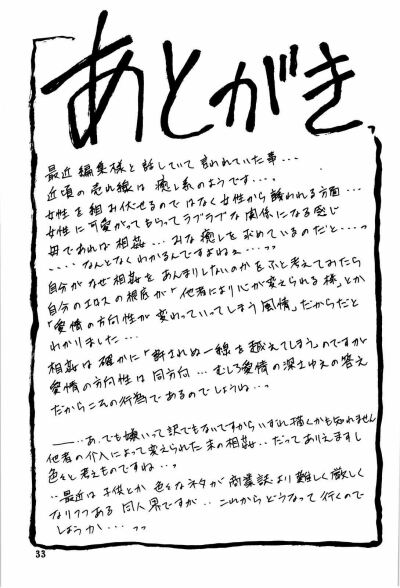 「あとがき」
最近 編集様と話していて 言われていた事・・・
近頃の売れ線は 癒し系のようです・・・。
女性を組みお伏せるのではなく女性から誘われる方面・・・
女性に可愛がってもらってラブラブな関係になる感じ
母であれば相姦・・・みな癒しを求めているのだと・・・っ
・・・・なんとなくわかるんですよねぇ・・・っっ
自分がなぜ相姦をあんまりしないのかをふと考えてみたら
自分のエロスの根底が“「他者により心が変えられる様」とか
「愛情の方向性が変わっていってしまう風情」だからだと
わかりました・・・
相姦は確かに「許されぬ一線を越えてしまう」のですが
愛情の方向性は同方向・・・むしろ愛情の深さゆえの答え
だからこその行為であるのでしょうね・・っ
――・・あ、でも嫌いって訳でもないですからいずれ描くかも知れません
他者の介入によって変えられた末の相姦・・だってありえますし
色々と考えものですね・・っ
・・最近は子供とか 色々なネタが商業誌より難しく厳しく
なりつつある同人界ですが・・これからどうなって行くので
しょうか・・・っっ
33